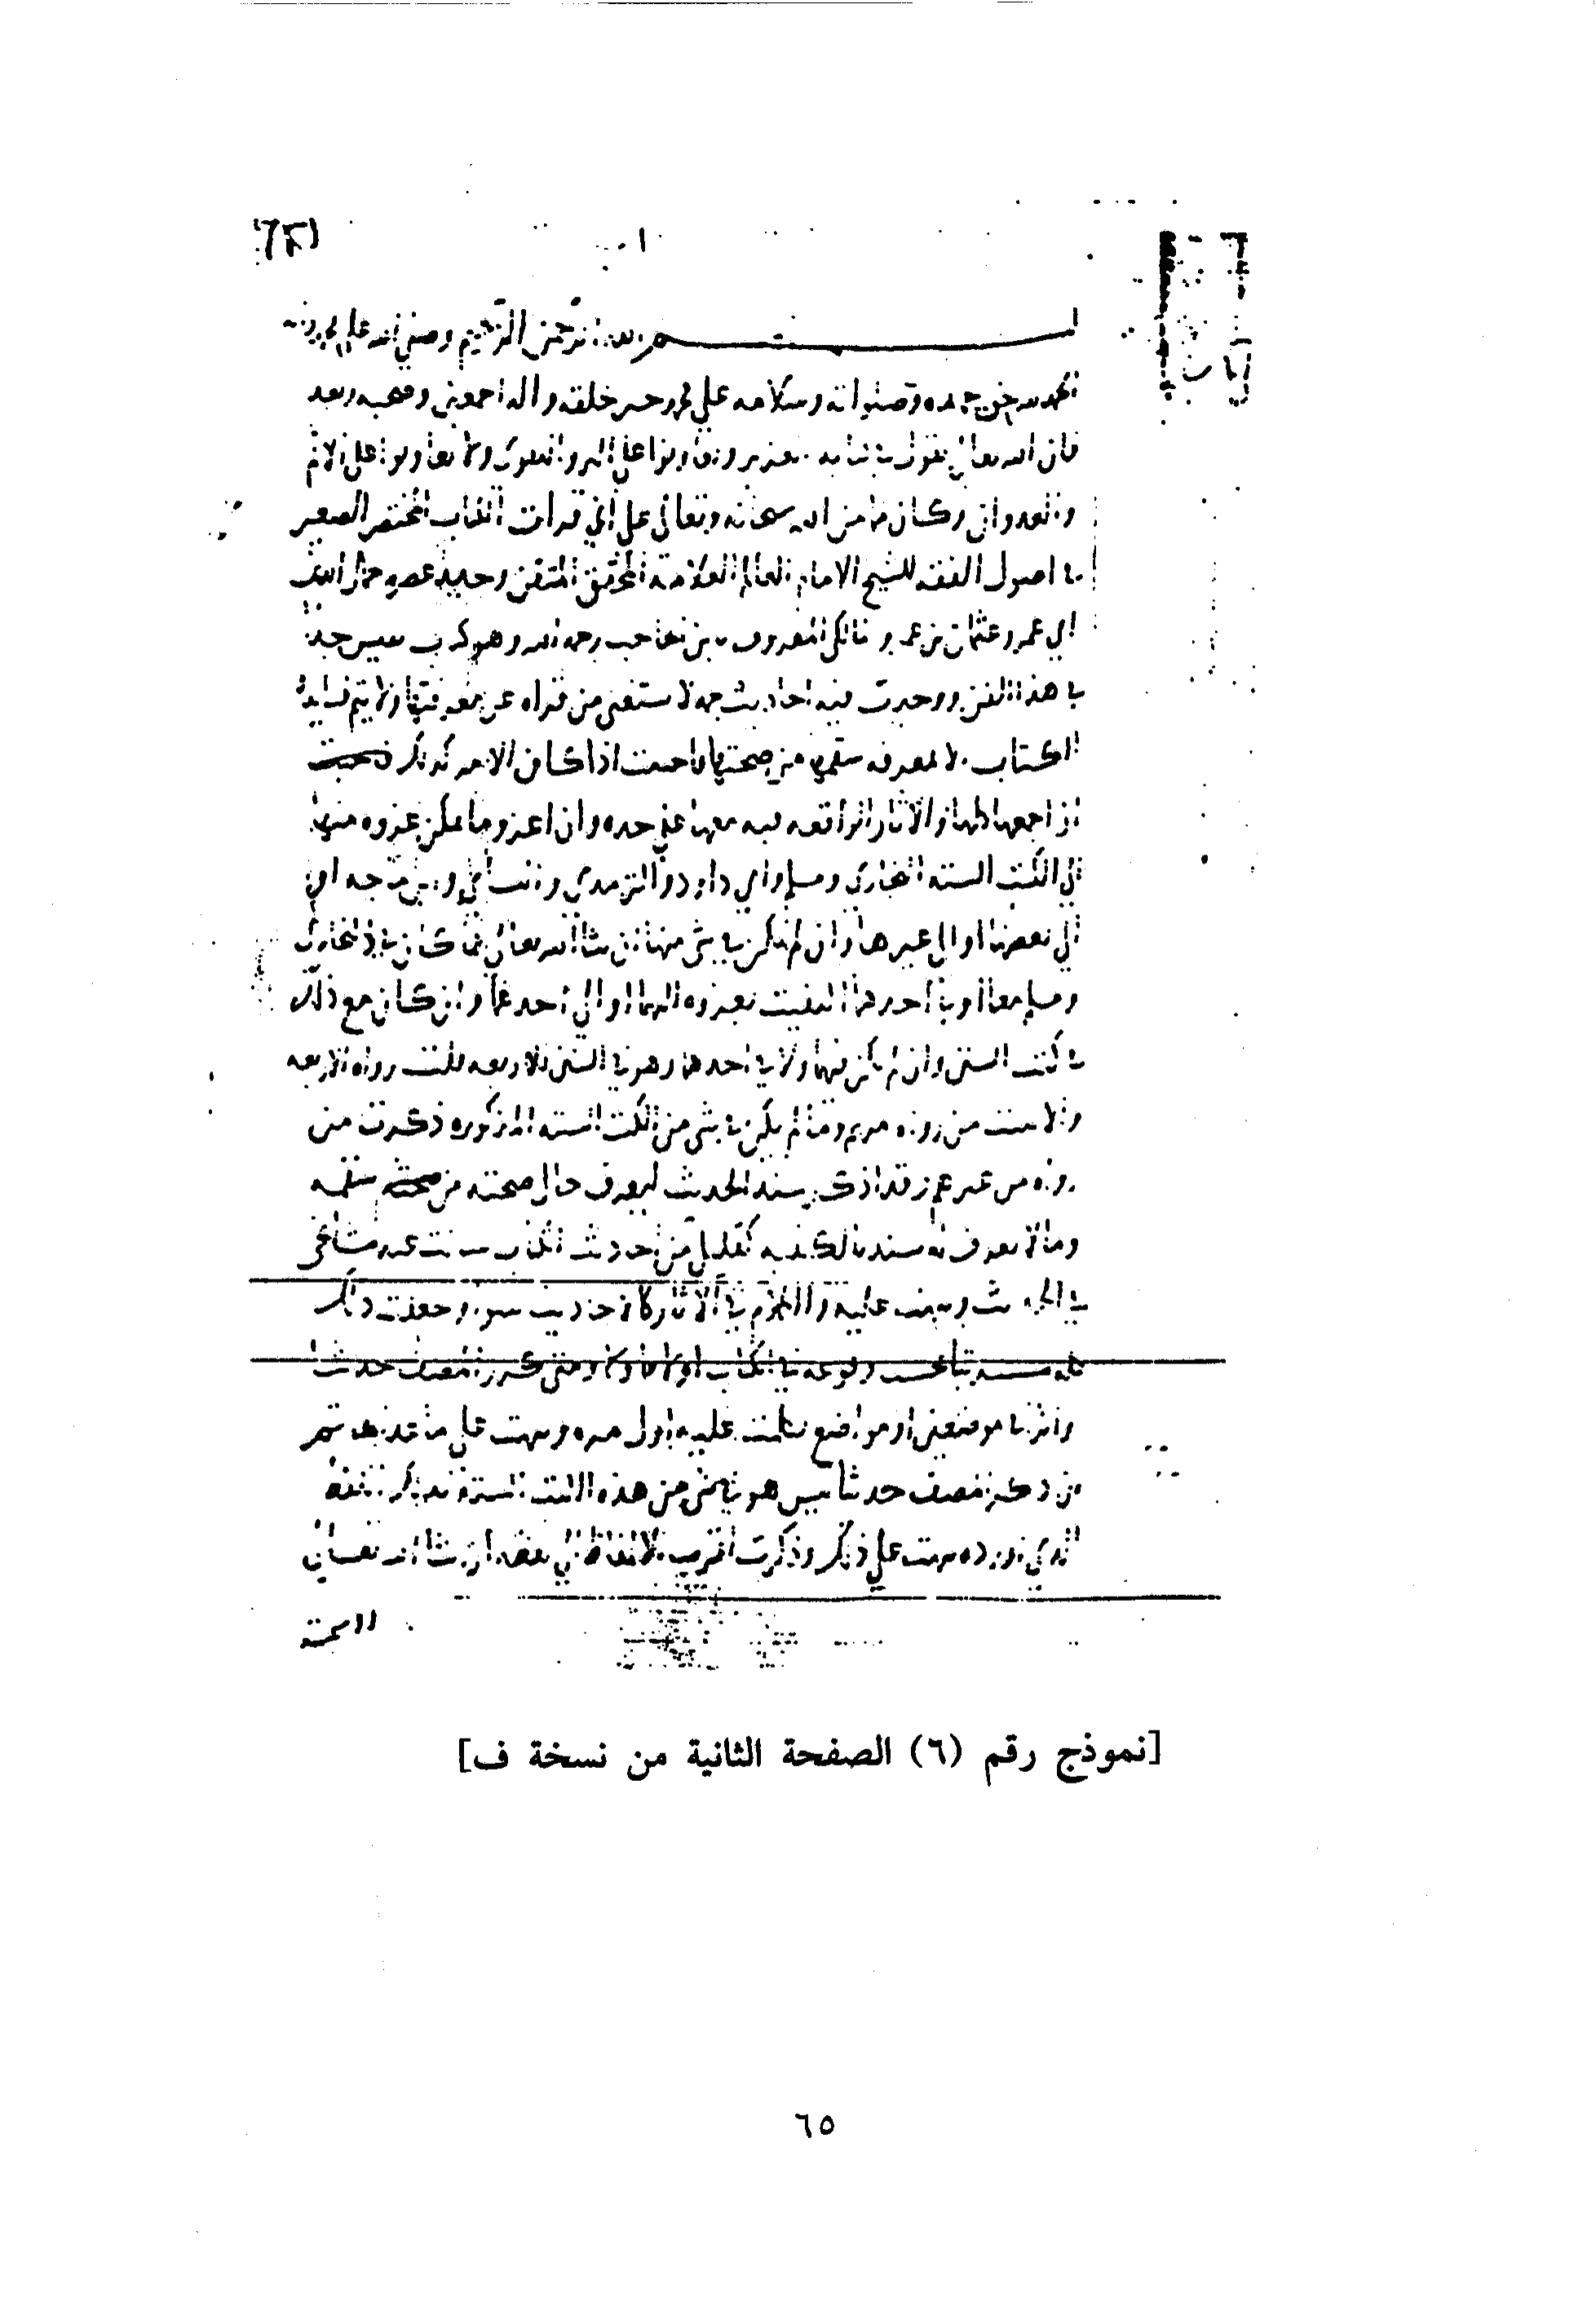 بسم الله الرحمن الرحيم وصلى الله على
الحمد لله حق حمده وصلواته وسلامه على محمد خير خلقه واله اجمعين وصحبه وبعد
فان الله تعالى يقول في كتابه العزيز وتعاونوا على البر والتقوى ولا تعاونوا على الاثم
والعدوان وكان مما من الله سبحانه وتعالى على اني قرات الكتاب المختصر الصغير
في اصول الفقه للشيخ الامام العالم العلامة المحقق المتقن وحيد عصره جمال الدين
ابي عمرو عثمان بن عمر المالكي المعروف بابن الحاجب رحمه الله وهو كتاب نفيس جدا
في هذا الفن ووجدت فيه احاديث جمة لا يستغني من قراه عن معرفتها ولا يتم فايدة
الكتاب الا بمعرفة سقمها من صحتها اذا كان الامر كذلك
ان اجمعها كلها والاثار الواقعة فيه معها على حده وان اعزو ما يمكن عزوه منها
الى الكتب الستة البخاري ومسلم وابي داود والترمذي والنسائي وابن ماجه او
الى بعضها او الى غيرها ان لم يكن في شي منها ان شا الله تعالى فما كان في البخاري
ومسلم معا او في احدهما اكتفيت بعزوه اليهما او الى احدهما وان كان مع ذلك
في كتب السنن وان لم يكن فيهما ولا في احدهما وهو في السنن الاربعة قلت رواه الاربعة
والا بينت من رواه منهم وما لم يكن في شي من الكتب الستة المذكورة ذكرت من
رواه من غيرهم وقد اذكر سند الحديث ليعرف حال صحته من سقمه
وما لا يعرف له سند بالكلية كقليل من احاديث الكتاب سالت عنه مشائخي
في الحديث ونبهت عليه والتزم في الاثار كالاحاديث سوا وجعلت ذلك
كله مرتبا بحسب وقوعه في الكتاب اولا فاولا ومتى كرر المصنف حديثا
او اثرا في موضعين او مواضع تكلمت عليه اول مرة ونبهت على ما عداها ثم
ان ذكر المصنف حديثا ليس هو في شي من هذه الكتب الستة بلفظه
الذي اورده نبهت على ذلك وذكرت اقرب الالفاظ الى لفظه ان شا الله تعالى
[نموذج رقم (٦) الصفحة الثانية من نسخة ف]
٦٥